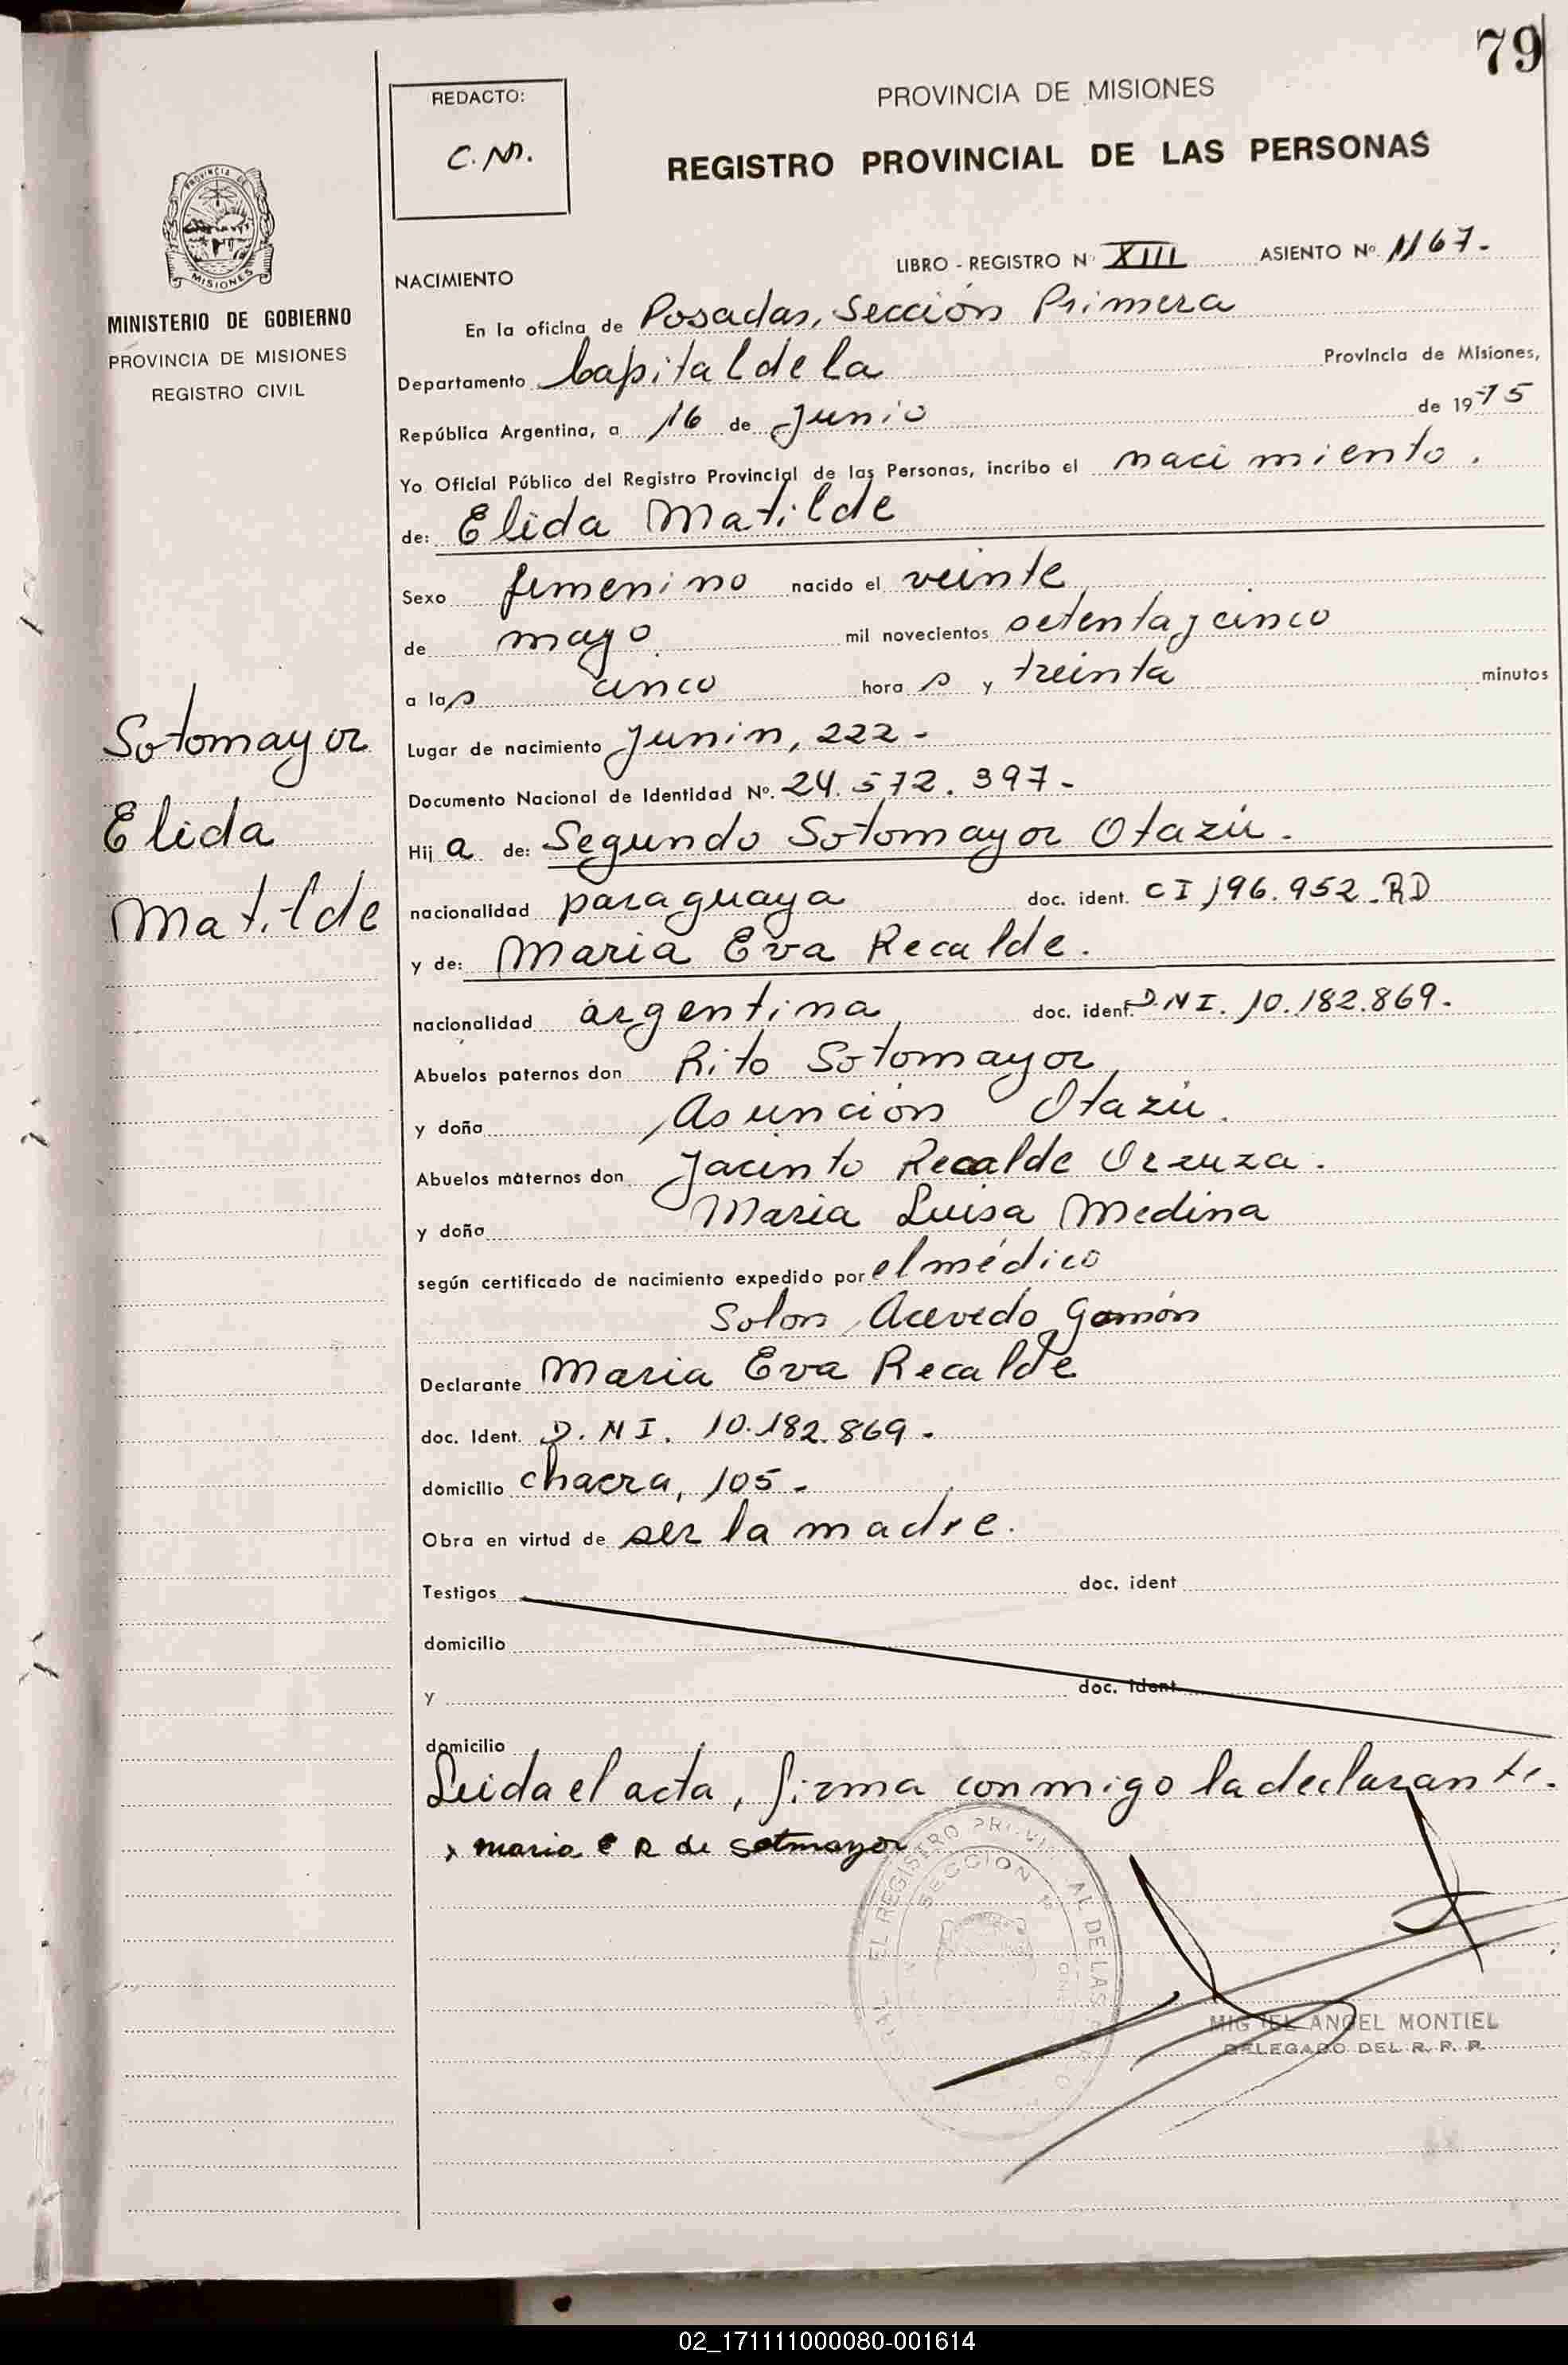 79
REDACTO:
C.M.
PROVINCIA DE MISIONES
REGISTRO PROVINCIAL DE LAS PERSONAS
PROVINCIA DE
MISIONES
MINISTERIO DE GOBIERNO
PROVINCIA DE MISIONES
REGISTRO CIVIL
LIBRO - REGISTRO Nº XIII ASIENTO Nº 1167.-
NACIMIENTO
En la oficina de Posadas, Sección Primera
Departamento Capital de la Provincia de Misiones,
República Argentina, a 16 de Junio de 1975
Yo Oficial Público del Registro Provincial de las Personas, incribo el nacimiento.
de: Elida Matilde
Sexo femenino nacido el veinte
de mayo mil novecientos setenta y cinco
a las cinco hora s y treinta minutos
Sotomayor
Elida
Matilde
Lugar de nacimiento Junin, 222-
Documento Nacional de Identidad Nº. 24.572.397-
Hij a de: Segundo Sotomayor Otazú.
nacionalidad paraguaya doc. ident. CI 196.952.RD
y de: Maria Eva Recalde.
nacionalidad argentina doc. ident. D.NI. 10.182.869.
Abuelos paternos don Rito Sotomayor
y doña Asunción Otazú.
Abuelos maternos don Jacinto Recalde Orzuza.
y doña Maria Luisa Medina
según certificado de nacimiento expedido por el médico
Solon Acevedo Gamón
Declarante Maria Eva Recalde
doc. Ident. D.NI. 10.182.869-
domicilio chacra, 105-
Obra en virtud de ser la madre.
Testigos doc. ident
domicilio
y doc. ident
domicilio
Leida el acta, firma conmigo la declarante.
x maria e R de sotmayor
EL REGISTRO AL DE LAS
SECCION 1ª
MIGUEL ANGEL MONTIEL
DELEGADO DEL R. P. P.
02_171111000080-001614